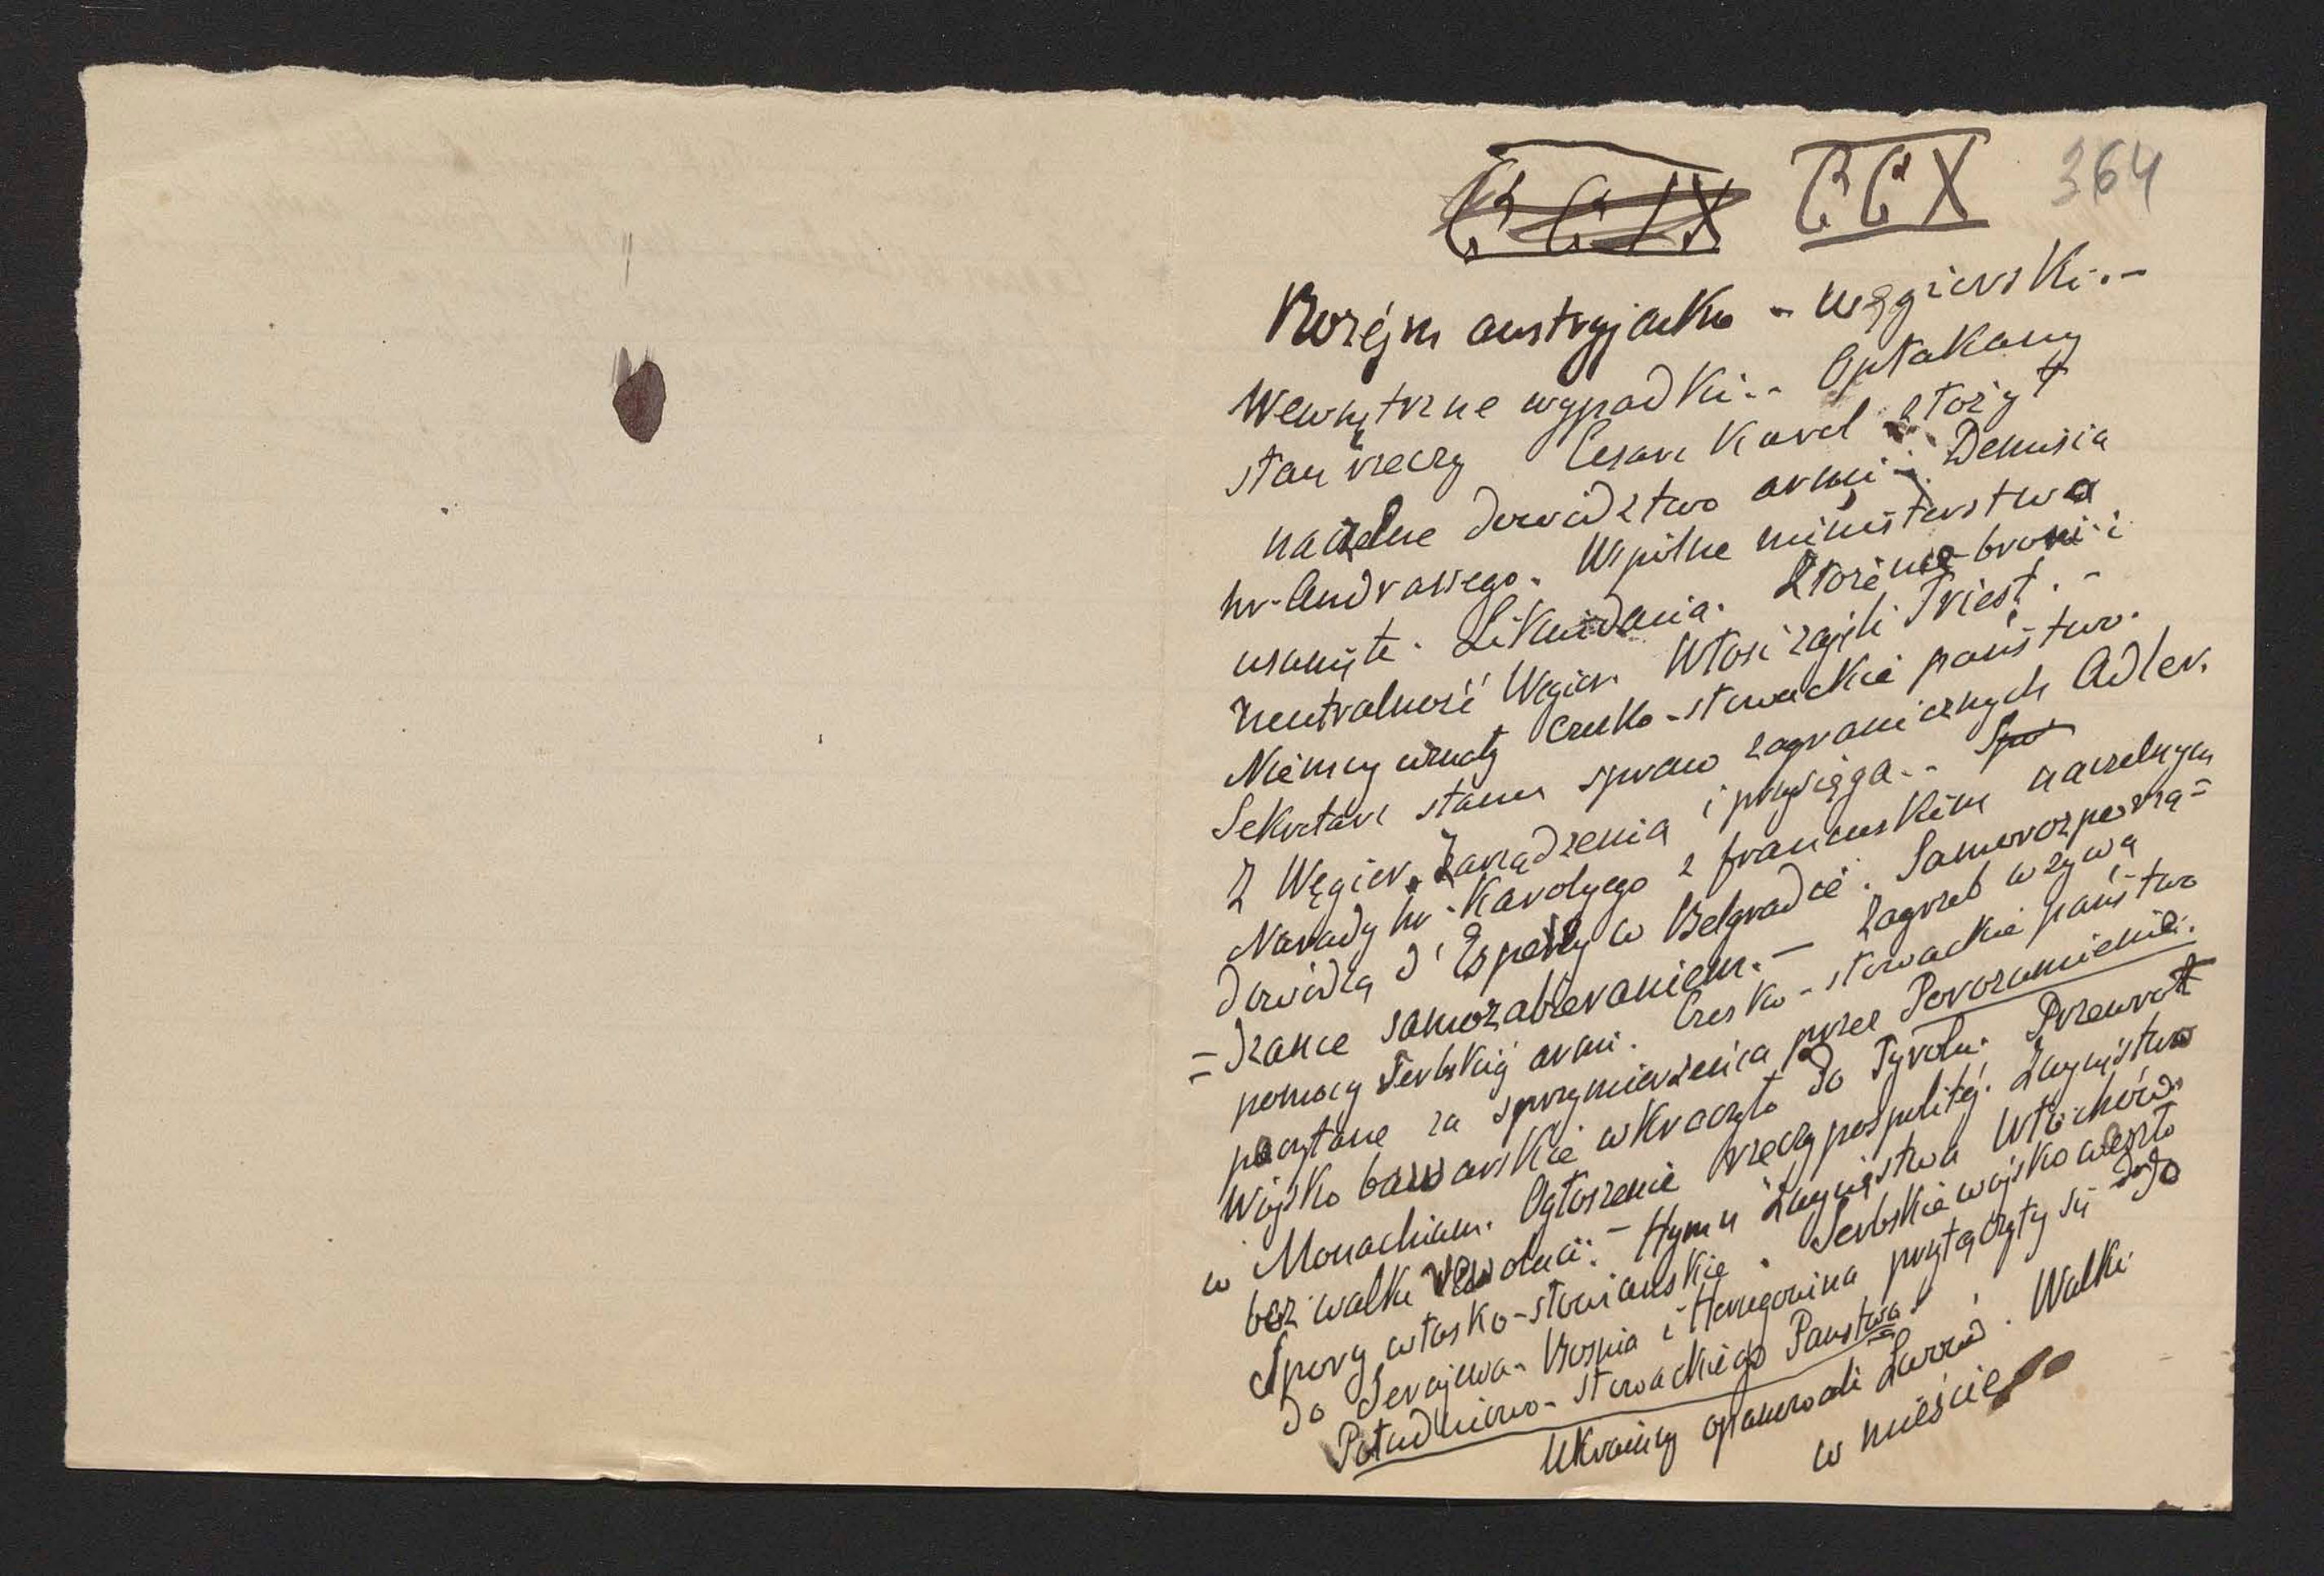 CCIX CCX 364
Rozéjm austryjacko - węgierski. -
Wewnętrzne wypadki. - Opłakany
stan rzeczy Cesarz Karol złożył
naczelne dowództwo armii. Demisia
hr. Andrassego. Wspólne ministerstwa
usunięte. Likwidacia. Złożenie broni i
neutralność Węgier. Włosi zajęli Triest. -
Niemcy uznały czesko-słowackie państwo.
Sekretarz stanu spraw zagranicznych Adler.
Z Węgier. Zarządzenia i przysięga. - Spo
Narady hr. Karolyego z francuskim naczelnym
dowódcą d'Esperey w Belgradzie. Samorozporzą=
=dzance samozabieraniem. - Zagrzeb wzywa
pomocy serbskiéj armi. Czesko-słowackie państwo
poczytane za sprzymierzeńca przez Porozumienie.
Wojsko bawarskie wkraczyło do Tyrolu. Przewrot
w Monachium. Ogłoszenie rzeczypospolitéj. Zwycięstwo
bez walki rewolucii. - Hymn zwycięstwa Włochów.
Spory włosko-słowianskie. Serbskie wojsko weszło
do Serajewa. Bosnia i Hercegowina przyłączyły się do
Południowo-słowackiego Panstwa.
Ukraincy opanowali Lwów. Walki
w mieście